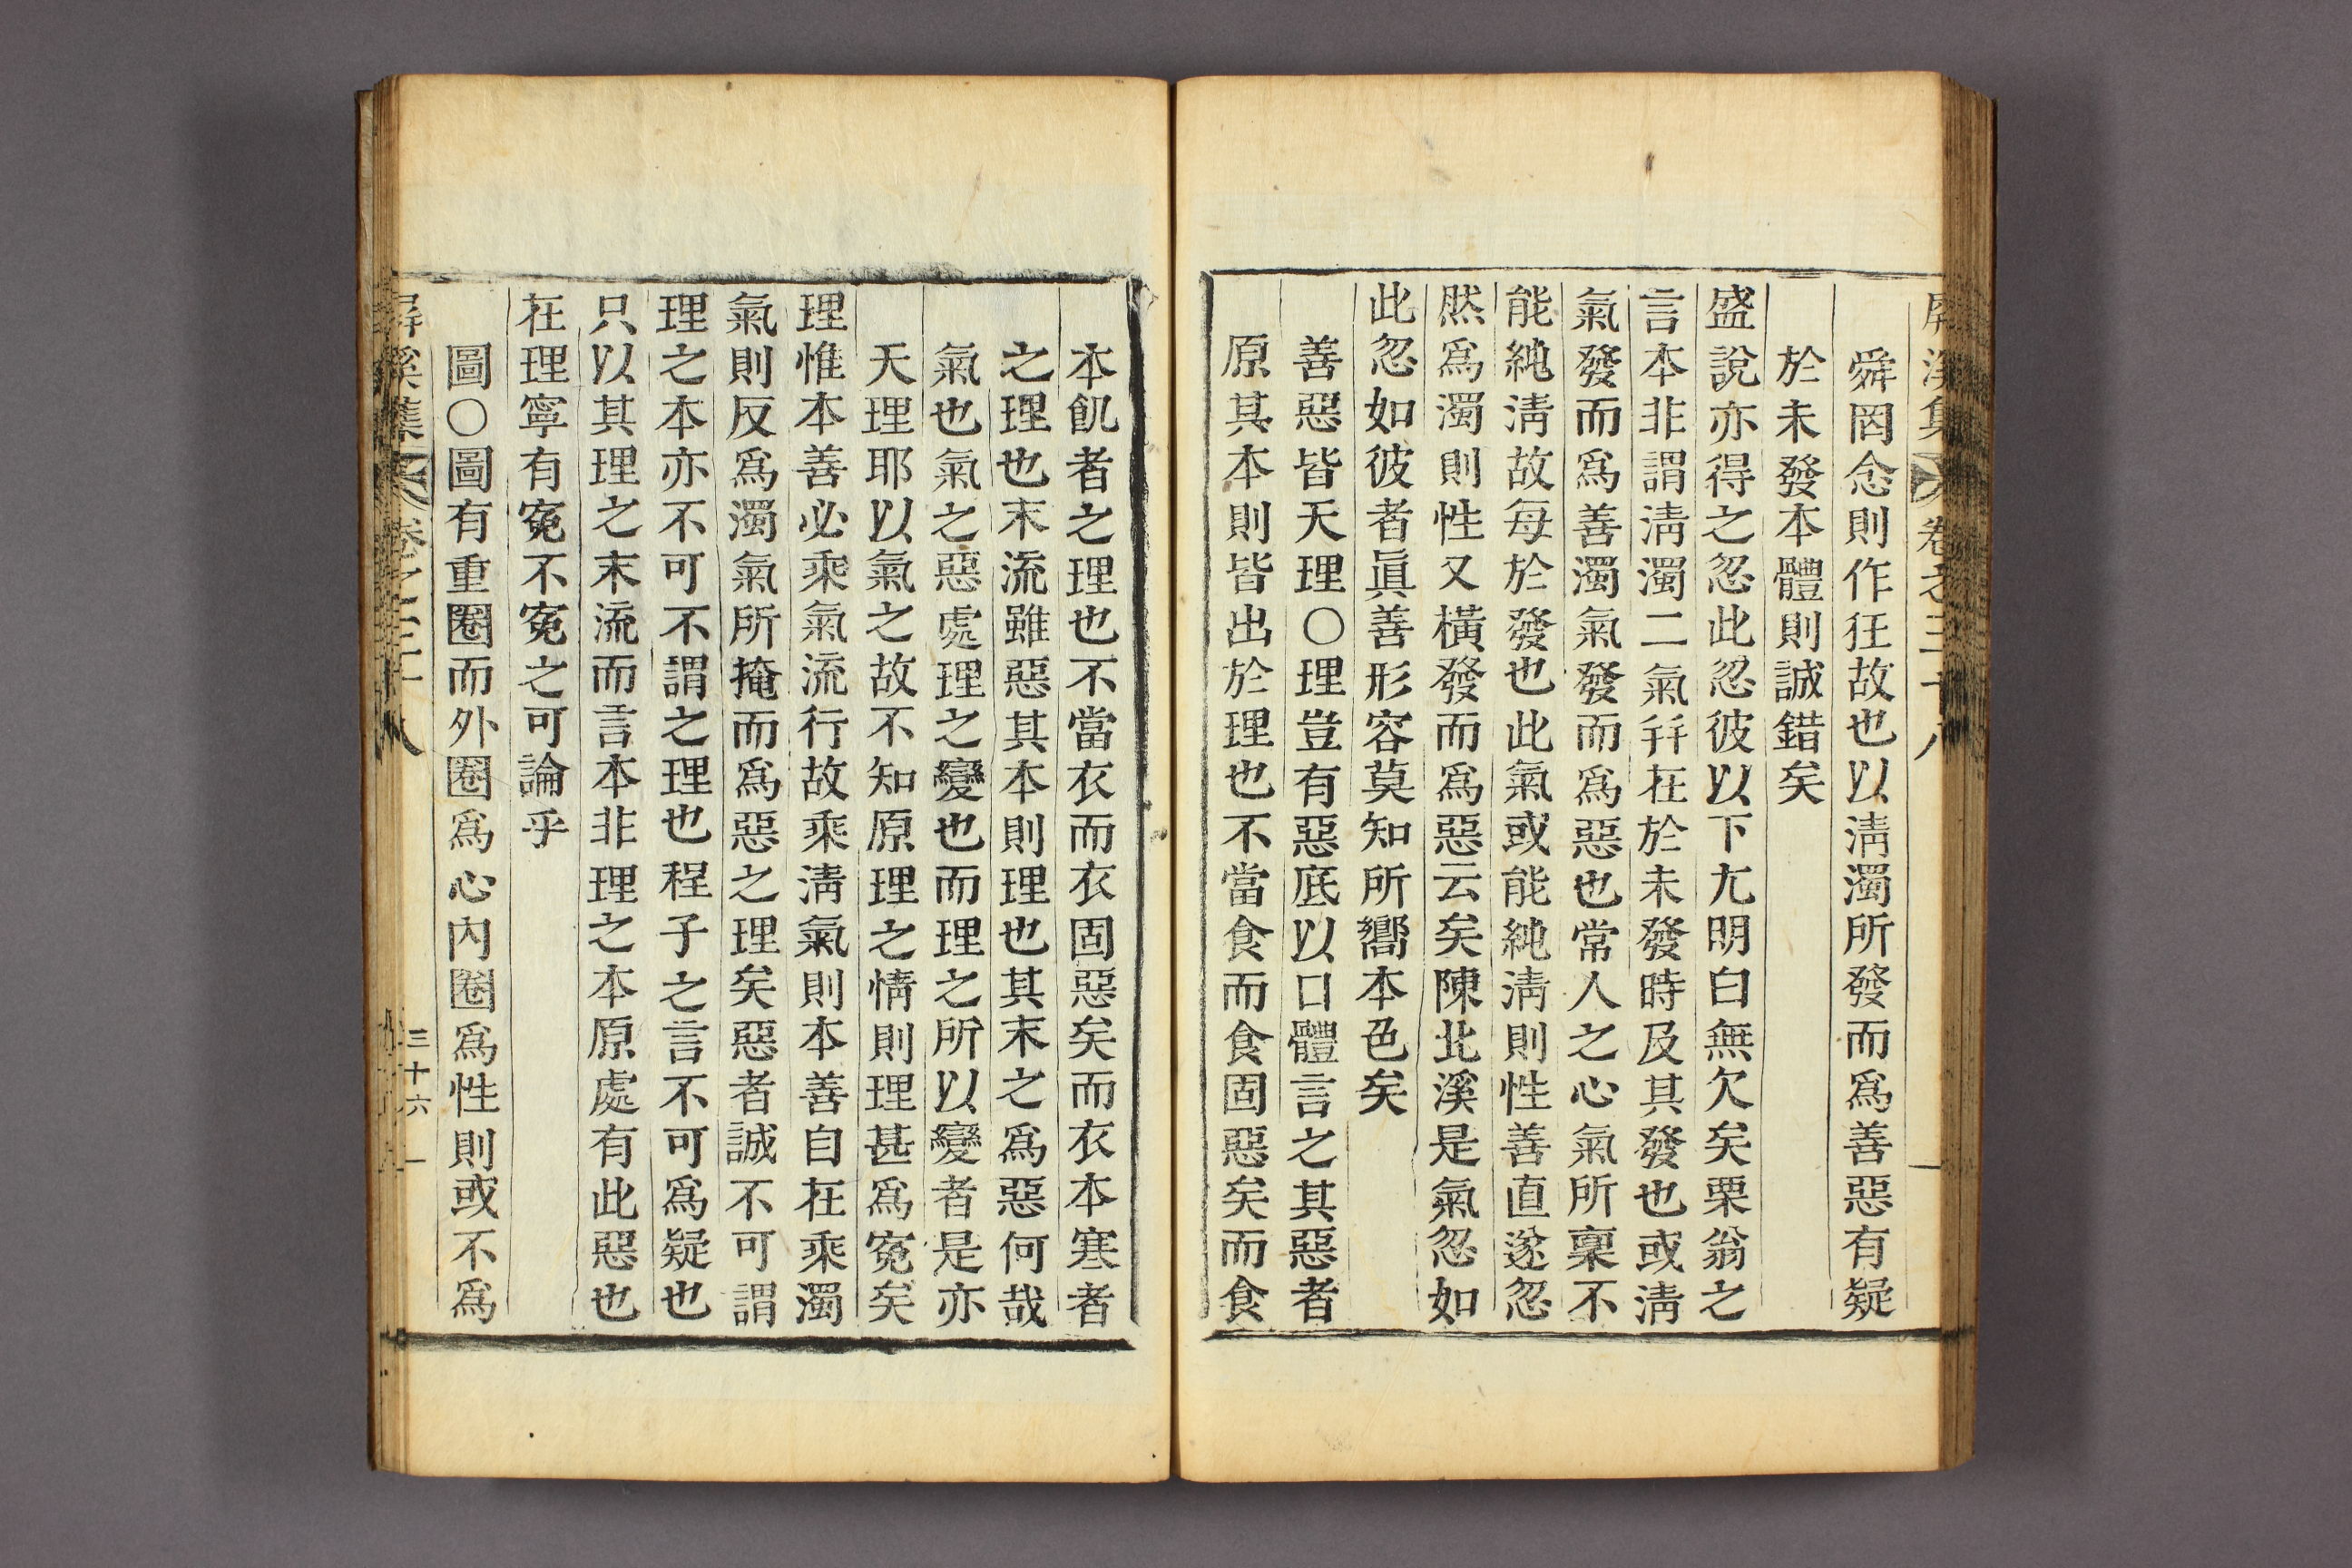 屏溪集 卷之三十八
舜罔念則作狂故也以淸濁所發而爲善惡有疑
於未發本體則誠錯矣
盛說亦得之忽此忽彼以下尢明白無欠矣栗翁之
言本非謂淸濁二氣幷在於未發時及其發也或淸
氣發而爲善濁氣發而爲惡也常人之心氣所稟不
能純淸故每於發也此氣或能純淸則性善直遂忽
然爲濁則性又橫發而爲惡云矣陳北溪是氣忽如
此忽如彼者眞善形容莫知所嚮本色矣
善惡皆天理○理豈有惡底以口體言之其惡者
原其本則皆出於理也不當食而食固惡矣而食
本飢者之理也不當衣而衣固惡矣而衣本寒者
之理也末流雖惡其本則理也其末之爲惡何哉
氣也氣之惡處理之變也而理之所以變者是亦
天理耶以氣之故不知原理之情則理甚爲寃矣
理惟本善必乘氣流行故乘淸氣則本善自在乘濁
氣則反爲濁氣所掩而爲惡之理矣惡者誠不可謂
理之本亦不可不謂之理也程子之言不可爲疑也
只以其理之末流而言本非理之本原處有此惡也
在理寧有寃不寃之可論乎
圖○圖有重圈而外圈爲心內圈爲性則或不爲
屏溪集 卷之三十八 三十六